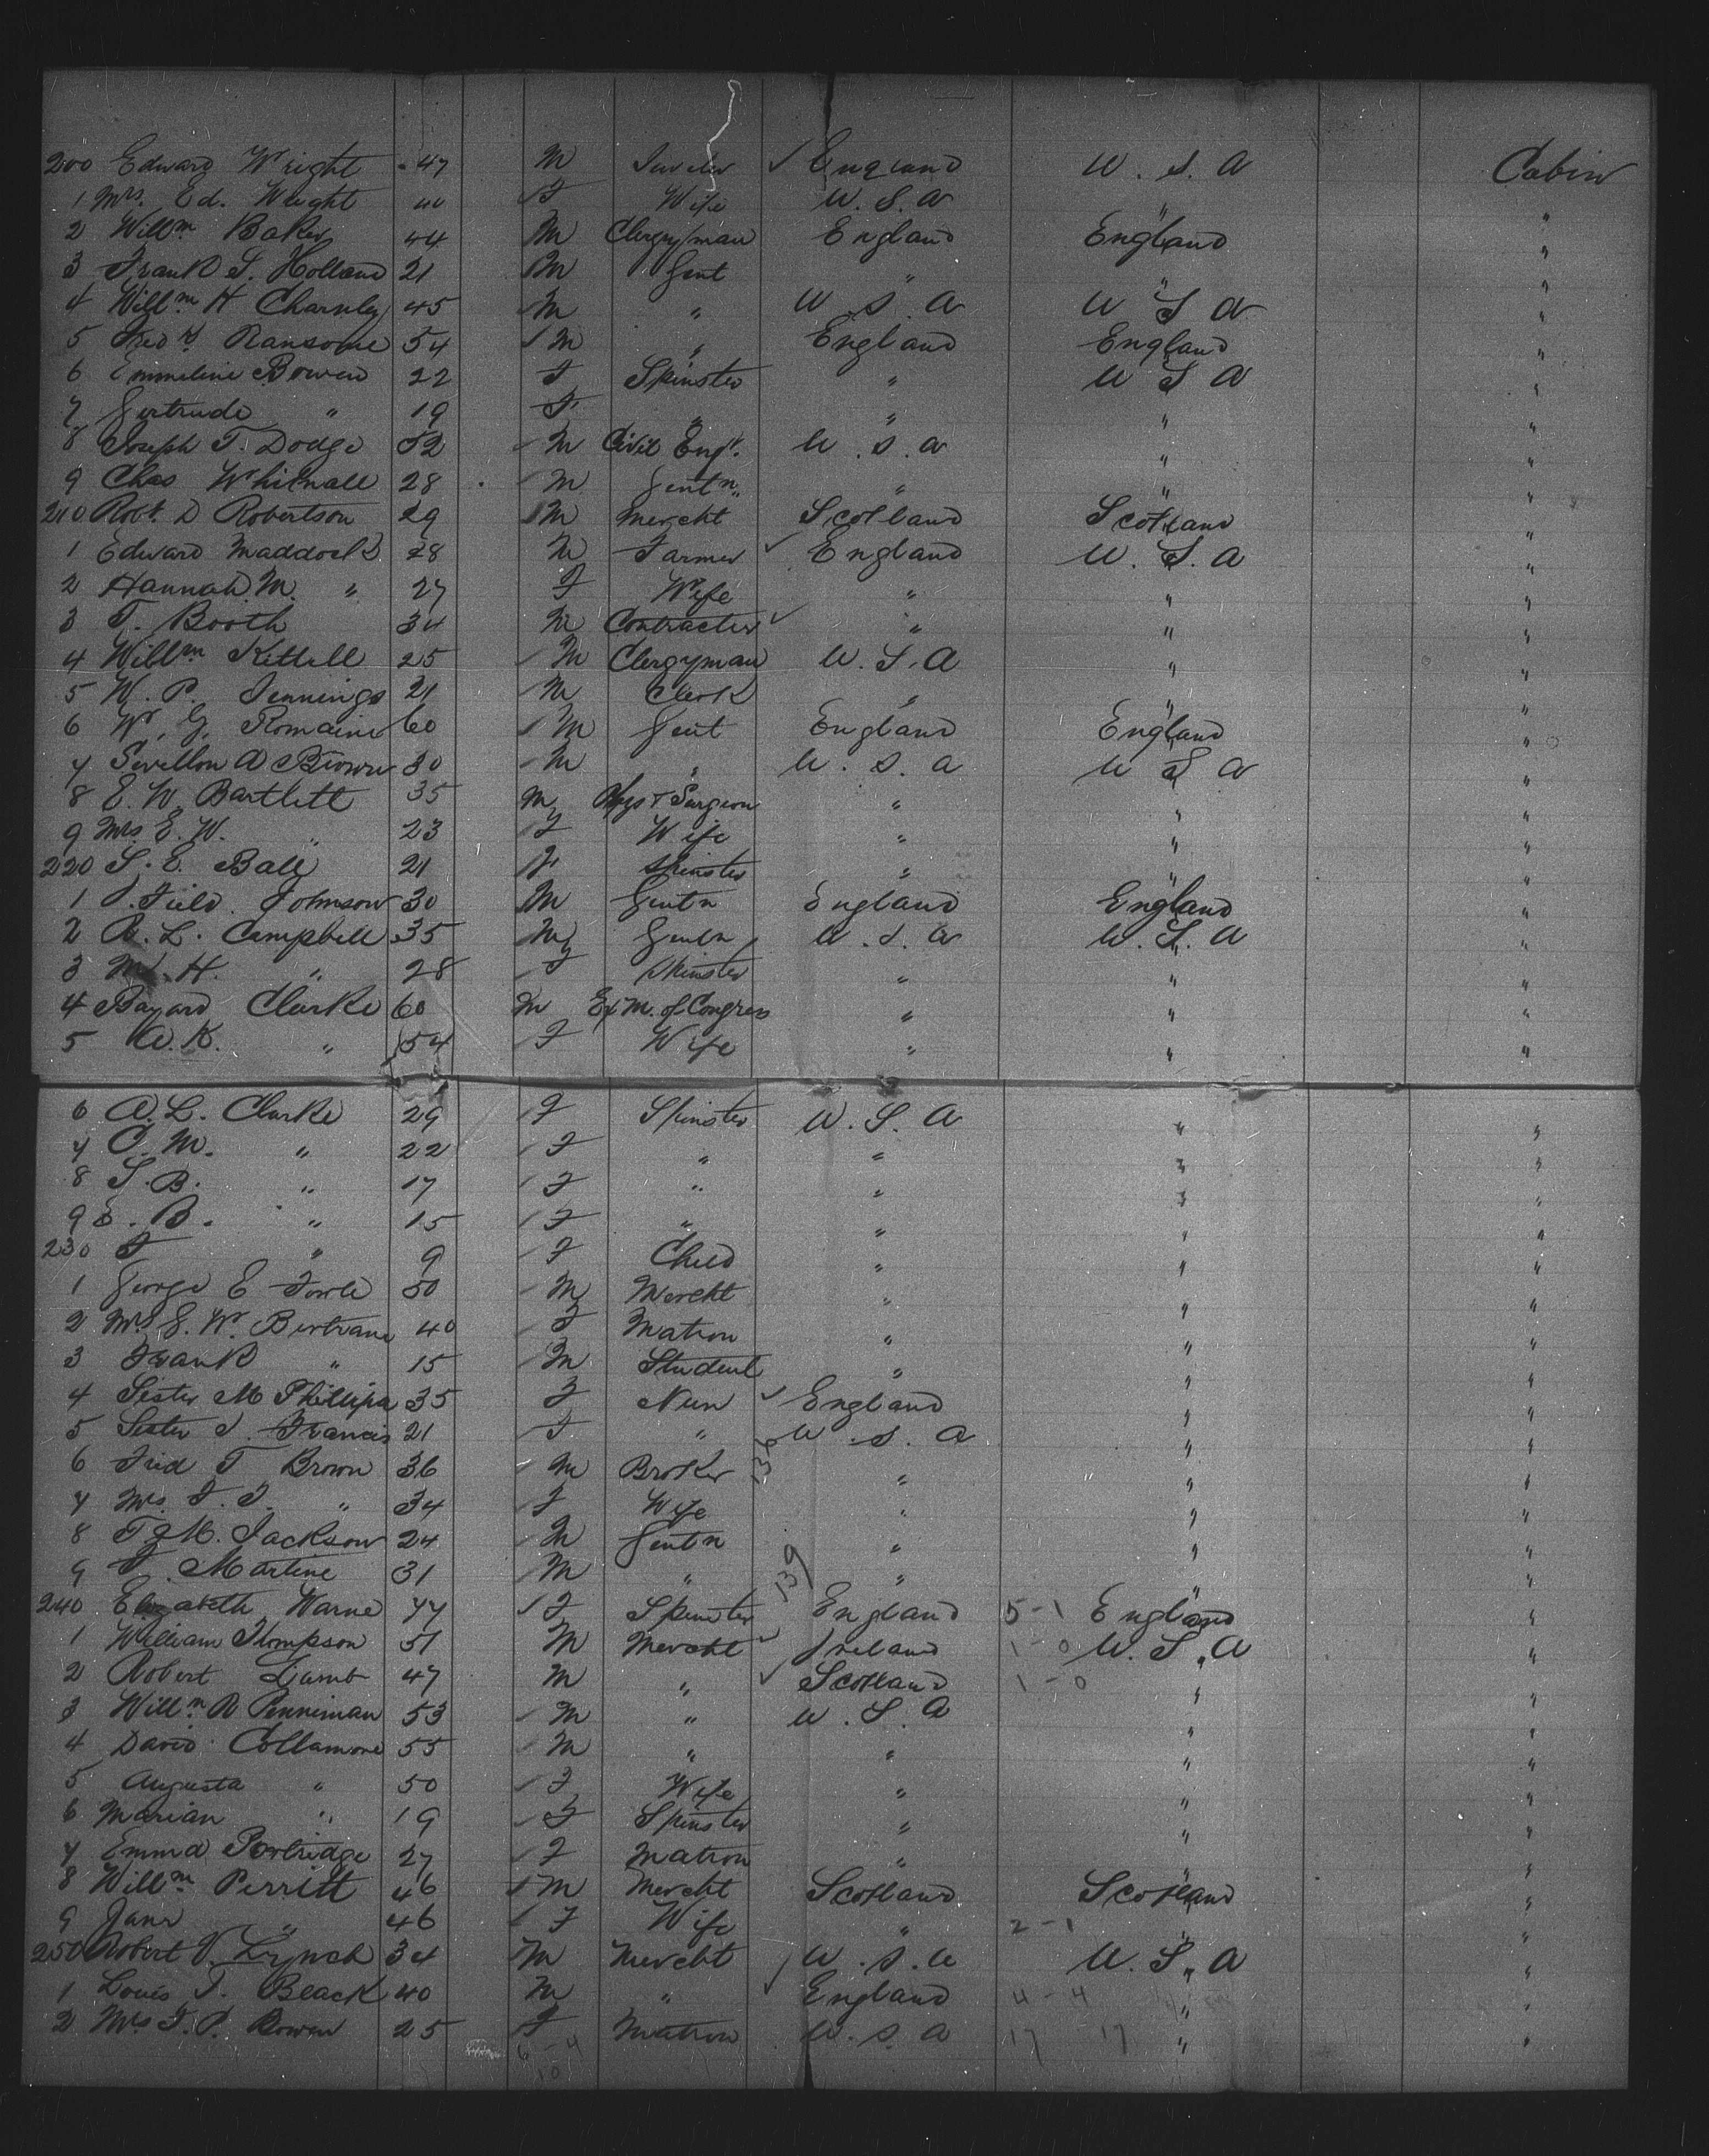 200 Edward Wright 47 M Jeweler ✓ England U.S.A Cabin
1 Mrs. Ed. Wright 40 F Wife U.S.A " "
2 Willm Baker 44 M Clergyman England England "
3 Frank S. Holland 21 M Gent " " "
4 Willm H Charnley 45 M " U S A U S A "
5 Fredk Ransome 54 M " England England "
6 Emmeline Bowen 22 F Spinster " U S A "
7 Gertrude " 19 F " " " "
8 Joseph T. Dodge 52 M Civil Engr. U.S.A " "
9 Chas Whitnall 28 M Gentn " " "
210 Robt. D Robertson 29 M Mercht Scotland Scotland "
1 Edward Maddock 28 M Farmer ✓ England U.S.A "
2 Hannah M. " 27 F Wife " " "
3 T. Booth 34 M Contractor ✓ " " "
4 Willm Kettell 25 M Clergyman U.S.A " "
5 W. P. Jennings 21 M Clerk " " "
6 W. G. Romaine 60 M Gent England England "
7 Sevillon A Brown 30 M " U.S.A U S A "
8 E. W. Bartlett 35 M Phys & Surgeon " " "
9 Mrs E. W. " 23 F Wife " " "
220 S. E. Ball 21 F Spinster " " "
1 J. Field Johnson 30 M Gentn England England "
2 R. L. Campbell 35 M Gentn U.S.A U.S.A "
3 H. " 28 F Spinster " " "
4 Bayard Clarke 60 M Ex M. of Congress " " "
5 A.K. " 54 F Wife " " "
6 A.L. Clarke 29 F Spinster U.S.A " "
7 C.M. " 22 F " " " "
8 S.B. " 17 F " " " "
9 E.B. " 15 F " " " "
230 F " 9 F Child " " "
1 George E Fowle 50 M Mercht " " "
2 Mrs E. W. Bertram 40 F Matron " " "
3 Frank " 15 M Student " " "
4 Sister M Phillipa 35 F Nun ✓ England " "
5 Sister J. Francis 21 F " U.S.A " "
6 Fred T Brown 36 M Broker 136 " " "
7 Mrs. F. T. " 34 F Wife " " "
8 T. M. Jackson 24 M Gentn " " "
9 F. Martine 31 M " 139 " " "
240 Elizabeth Warne 44 F Spinster England 5-1 England "
1 William Thompson 51 M Mercht ✓ Ireland 1-0 U.S.A "
2 Robert Lamb 47 M " ✓ Scotland 1-0 " "
3 Willm R Penniman 53 M " U.S.A " "
4 David Collamore 55 M " " " "
5 Augusta " 50 F Wife " " "
6 Marian " 19 F Spinster " " "
7 Emma Partridge 27 F Matron " " "
8 Willm Perritt 46 M Mercht Scotland Scotland "
9 Jane " 46 F Wife " 2-1 " "
250 Robert V. Lynch 34 M Mercht U.S.A U.S.A "
1 Louis T. Black 40 M " ✓ England 4-4 " "
2 Mrs F. P. Bowen 25 F Matron U.S.A 17 17 " "
6-4
10